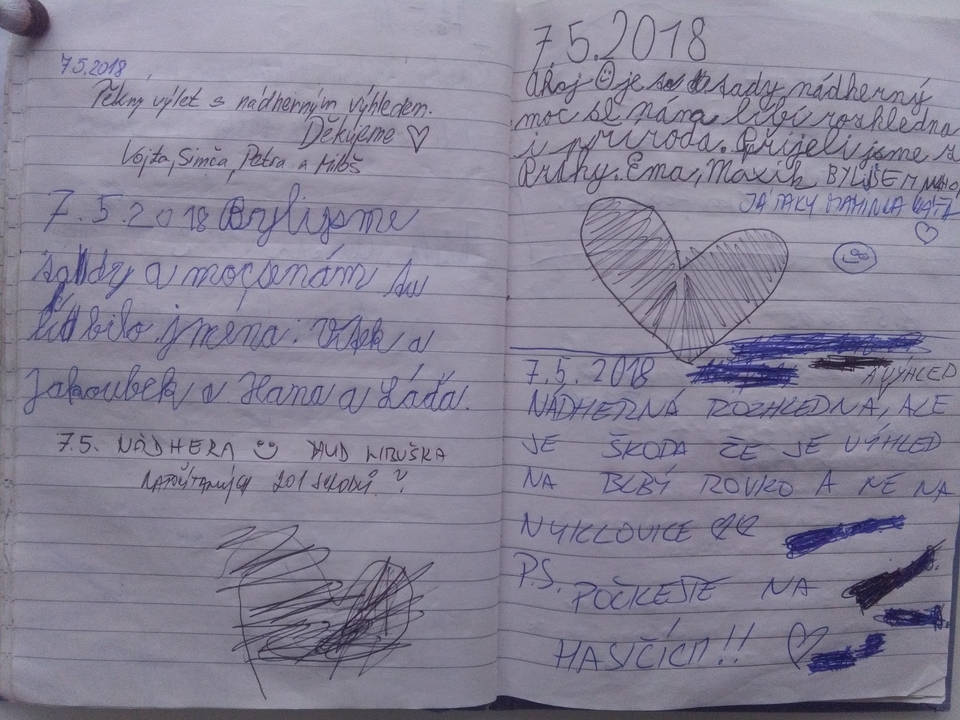 7.5.2018
Pěkný výlet s nádherným výhledem.
Děkujeme ♡
Vojta, Simča, Petra a Miloš
7.5.2018 Byli jsme
tady a moc se nám tu
líbilo jména: Vítek a
Jakoubek a Hana a Láďa.
7.5. NÁDHERA
NAPOČÍTANÝCH 201 SCHODŮ ?
7.5.2018
Ahoj je to tady nádherný
moc se nám líbí rozhledna
i příroda. Přijeli jsme z
Prahy. Ema, Maxík BYL JSEM
JÁ TAKY MAMINKA
7.5.2018
A VÝHLED
NÁDHERNÁ ROZHLEDNA, ALE
JE ŠKODA ŽE JE VÝHLED
NA BLBÝ ROVKO A NE NA
NYKLOVICE
P.S. POČKEJTE NA
HASIČÍCH!! ♡